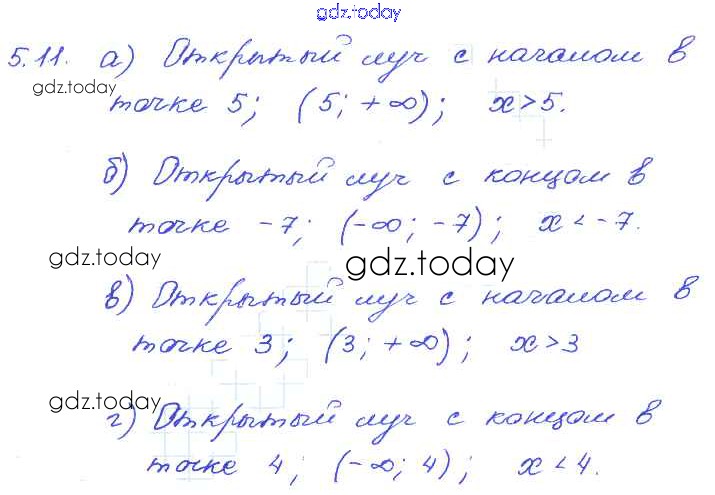 gdz.today
5.11. а) Открытый луч с началом в
gdz.today
точке 5; (5; +∞); x>5.
б) Открытый луч с концом в
точке -7; (-∞; -7); x < -7.
gdz.today
gdz.today
в) Открытый луч с началом в
точке 3; (3; +∞); x>3
gdz.today
г) Открытый луч с концом в
точке 4; (-∞; 4); x<4.